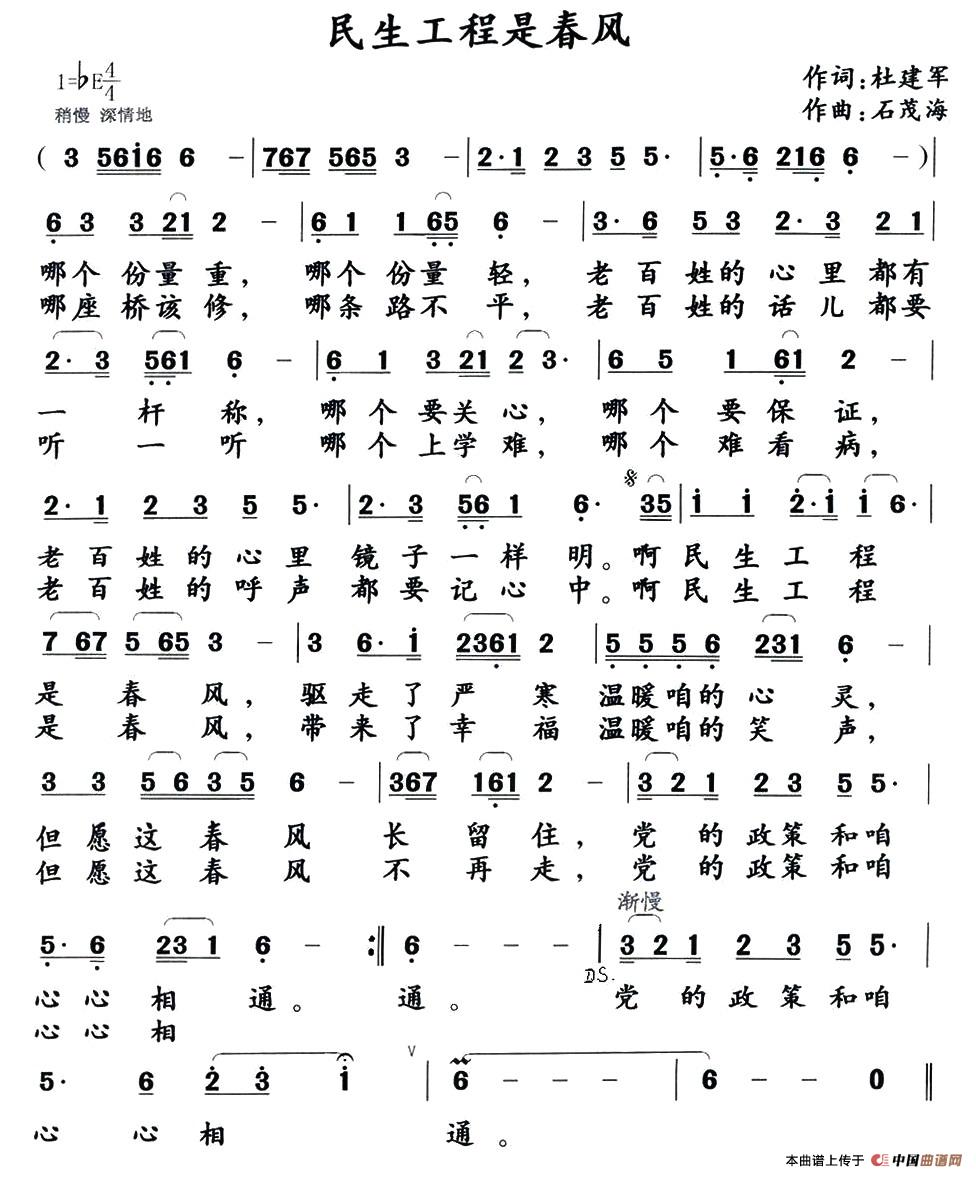 民生工程是春风
1=♭E 4/4
作词:杜建军
稍慢 深情地
作曲:石茂海
( 3 5616 6 - | 767 565 3 - | 2·1 2 3 5 5· | 5·6 216 6 - ) |
6 3 3 21 2 - | 6 1 1 65 6 - | 3· 6 5 3 2· 3 2 1
哪个 份量 重, 哪个 份量 轻, 老 百 姓的 心 里 都有
哪座 桥该 修, 哪条 路不 平, 老 百 姓的 话 儿 都要
2· 3 561 6 - | 6 1 3 21 2 3· | 6 5 1 61 2 - |
一 杆 称, 哪 个 要关 心, 哪 个 要 保 证,
听 一 听 哪 个 上学 难, 哪 个 难 看 病,
2· 1 2 3 5 5· | 2· 3 56 1 6· 35 | i i 2·i i 6· |
老 百 姓 的 心 里 镜 子 一 样 明。啊 民 生 工 程
老 百 姓 的 呼 声 都 要 记 心 中。啊 民 生 工 程
7 67 5 65 3 - | 3 6· i 2361 2 | 5 5 5 6 231 6 - |
是 春 风, 驱 走 了 严 寒 温暖咱的 心 灵,
是 春 风, 带 来 了 幸 福 温暖咱的 笑 声,
3 3 5 6 3 5 6 - | 367 161 2 - | 3 2 1 2 3 5 5· |
但愿这 春 风 长 留 住, 党 的 政策 和咱
但愿这 春 风 不 再 走, 党 的 政策 和咱
渐慢
5· 6 23 1 6 - :‖ 6 - - - | 3 2 1 2 3 5 5· |
D.S.
心心 相 通。 通。 党 的 政策 和咱
心心 相
5· 6 2 3 i ∨ | 6 - - - | 6 - - 0 ‖
心 心 相 通。
本曲谱上传于 中国曲谱网